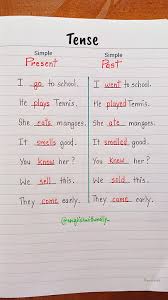 Tense
Simple Present Simple Past
I go to school. I went to school.
He plays Tennis. He played Tennis.
She eats mangoes. She ate mangoes.
It smells good. It smelled good.
You know her? You knew her?
We sell this. We sold this.
They come early. They came early.